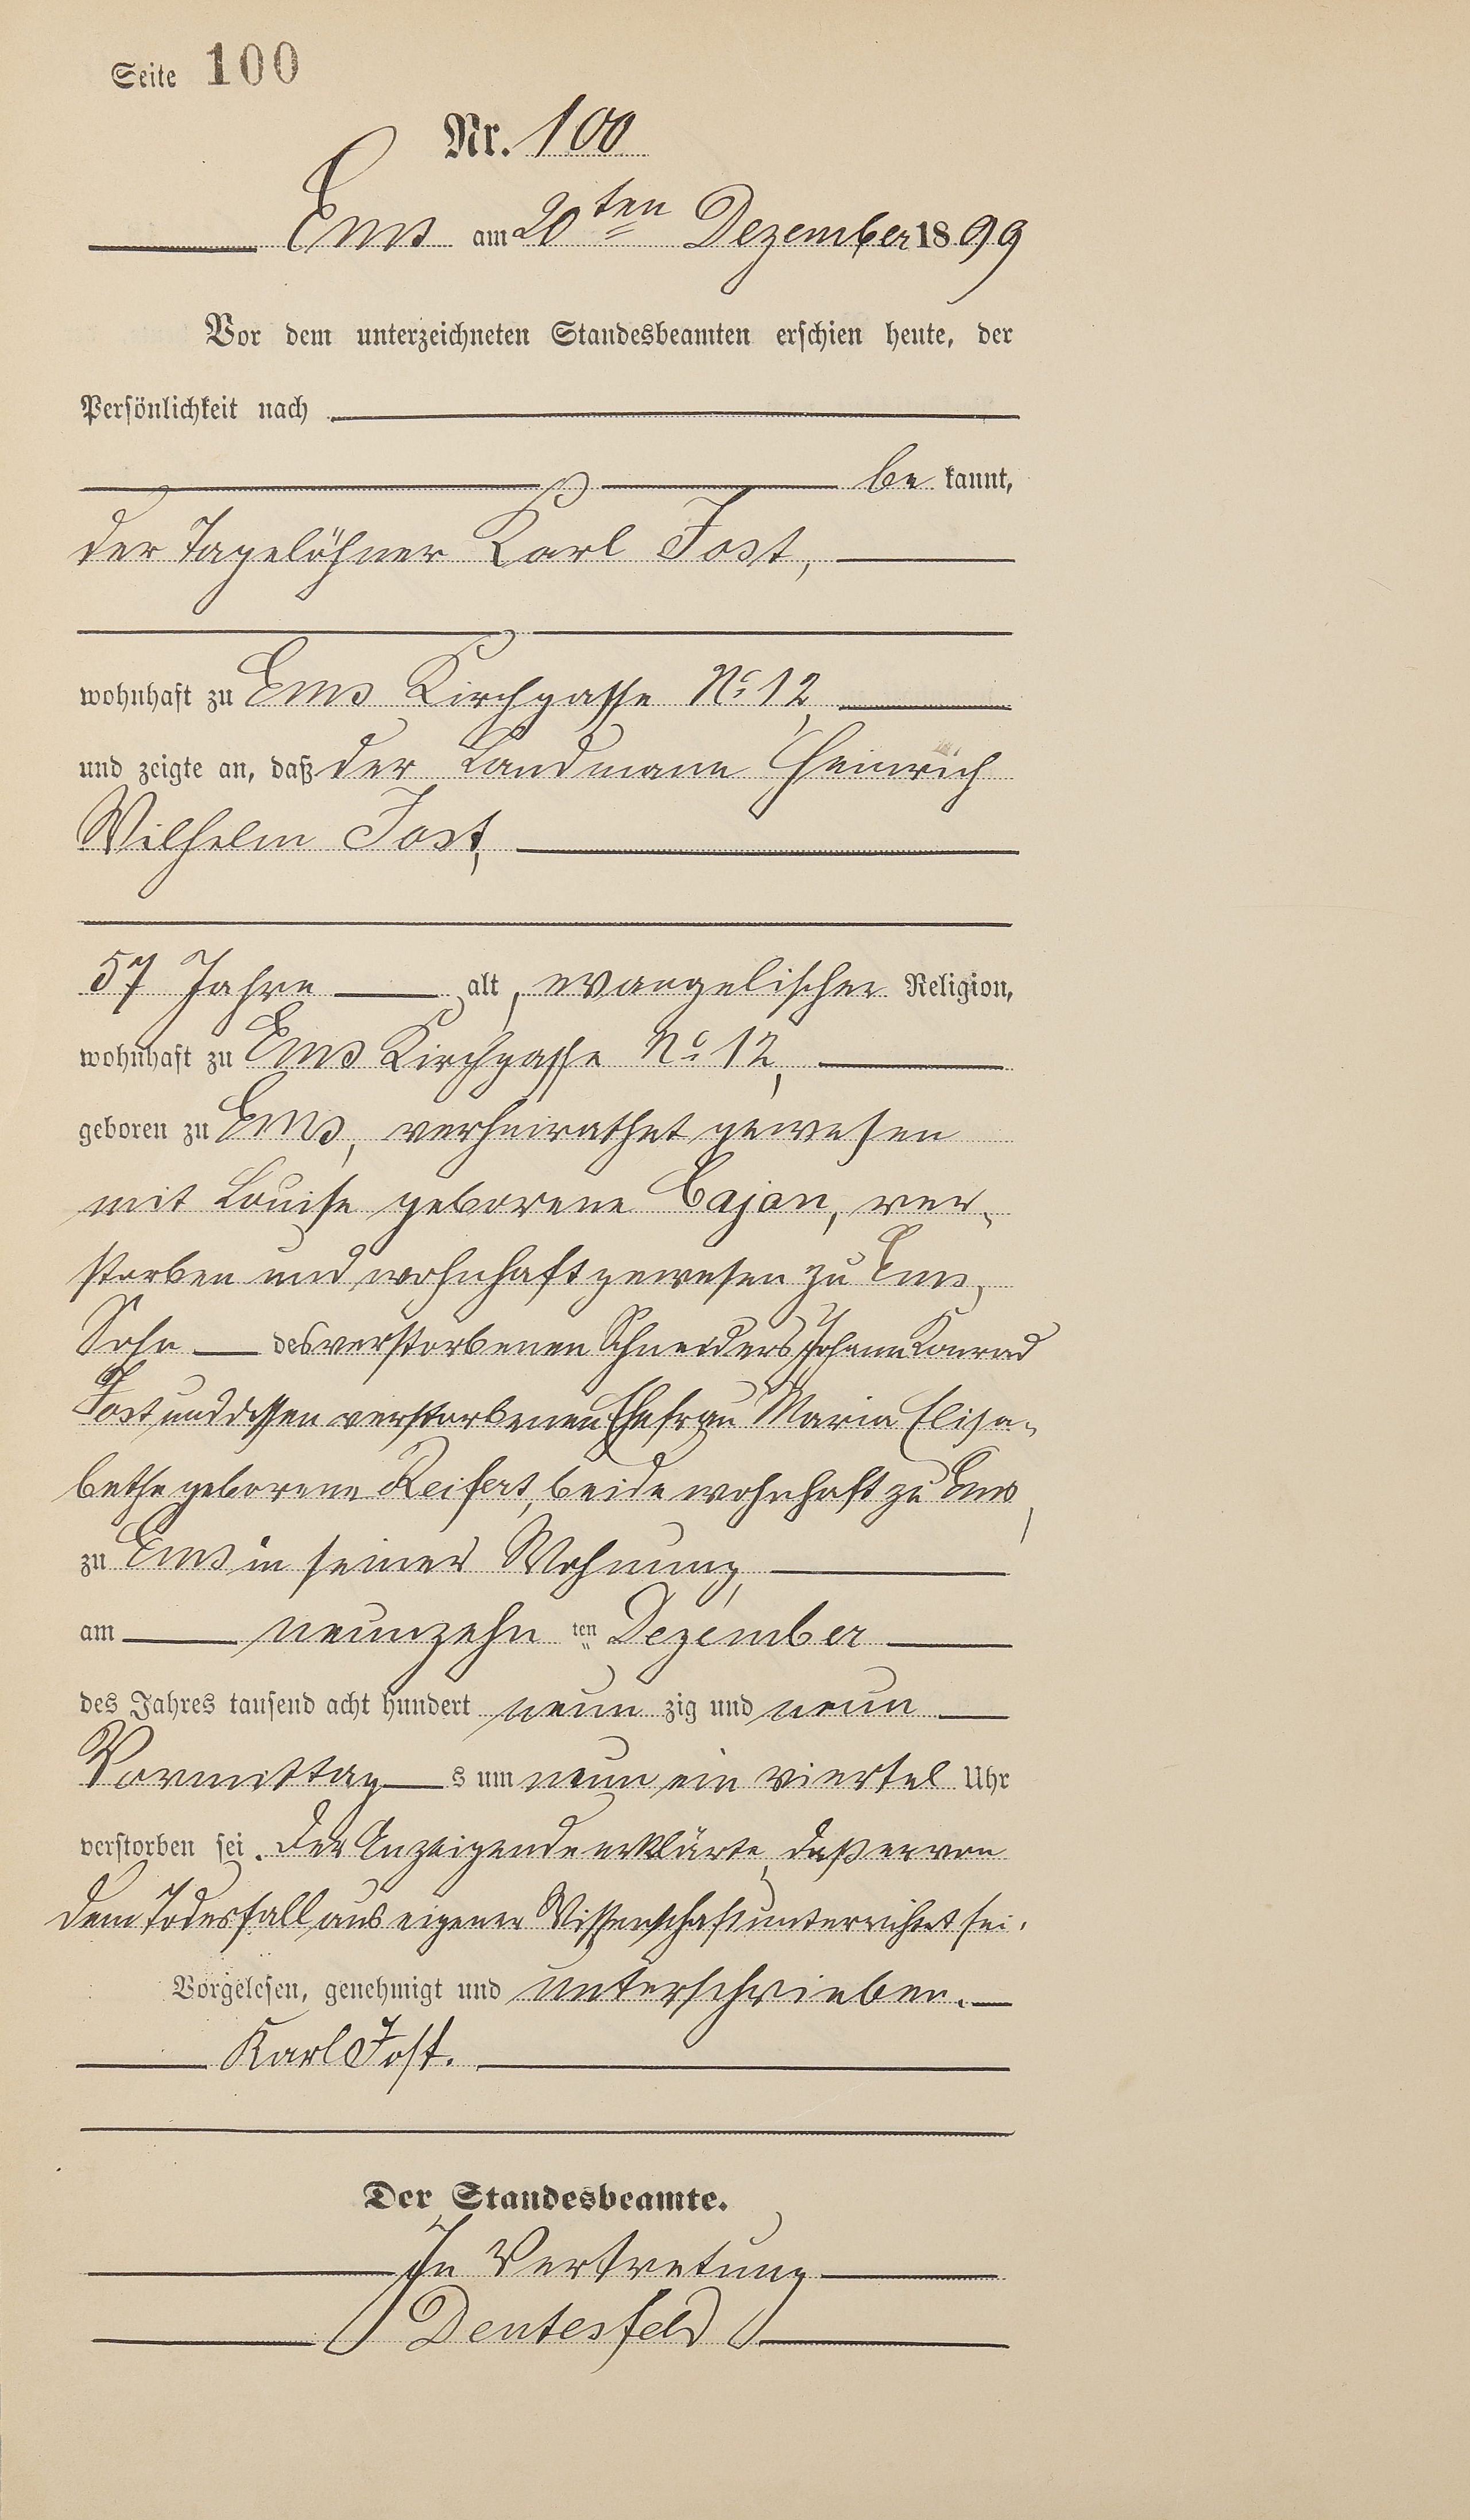 Seite 100
Nr. 100
Ems am 20ten Dezember 1899
Vor dem unterzeichneten Standesbeamten erschien heute, der
Persönlichkeit nach
be kannt,
der Tagelöhner Karl Jost,
wohnhaft zu Ems Kirchgasse No 12,
und zeigte an, daß der Landmann Heinrich
Wilhelm Jost,
57 Jahre alt, evangelischer Religion,
wohnhaft zu Ems Kirchgasse No 12,
geboren zu Ems, verheirathet gewesen
mit Louise geborene Cajan, ver-
storben und wohnhaft gewesen zu Ems,
Sohn des verstorbenen Schneiders Johann Konrad
Jost und dessen verstorbenen Ehefrau Maria Elisa-
bethe geborene Reifert, beide wohnhaft zu Ems,
zu Ems in seiner Wohnung,
am neunzehn ten Dezember
des Jahres tausend acht hundert neun zig und neun
Vormittag s um neun ein viertel Uhr
verstorben sei. Der Anzeigende erklärte, daß er von
dem Todesfall aus eigener Wissenschaft unterrichtet sei.
Vorgelesen, genehmigt und unterschrieben.
Karl Jost.
Der Standesbeamte.
In Vertretung
Dentesfeld